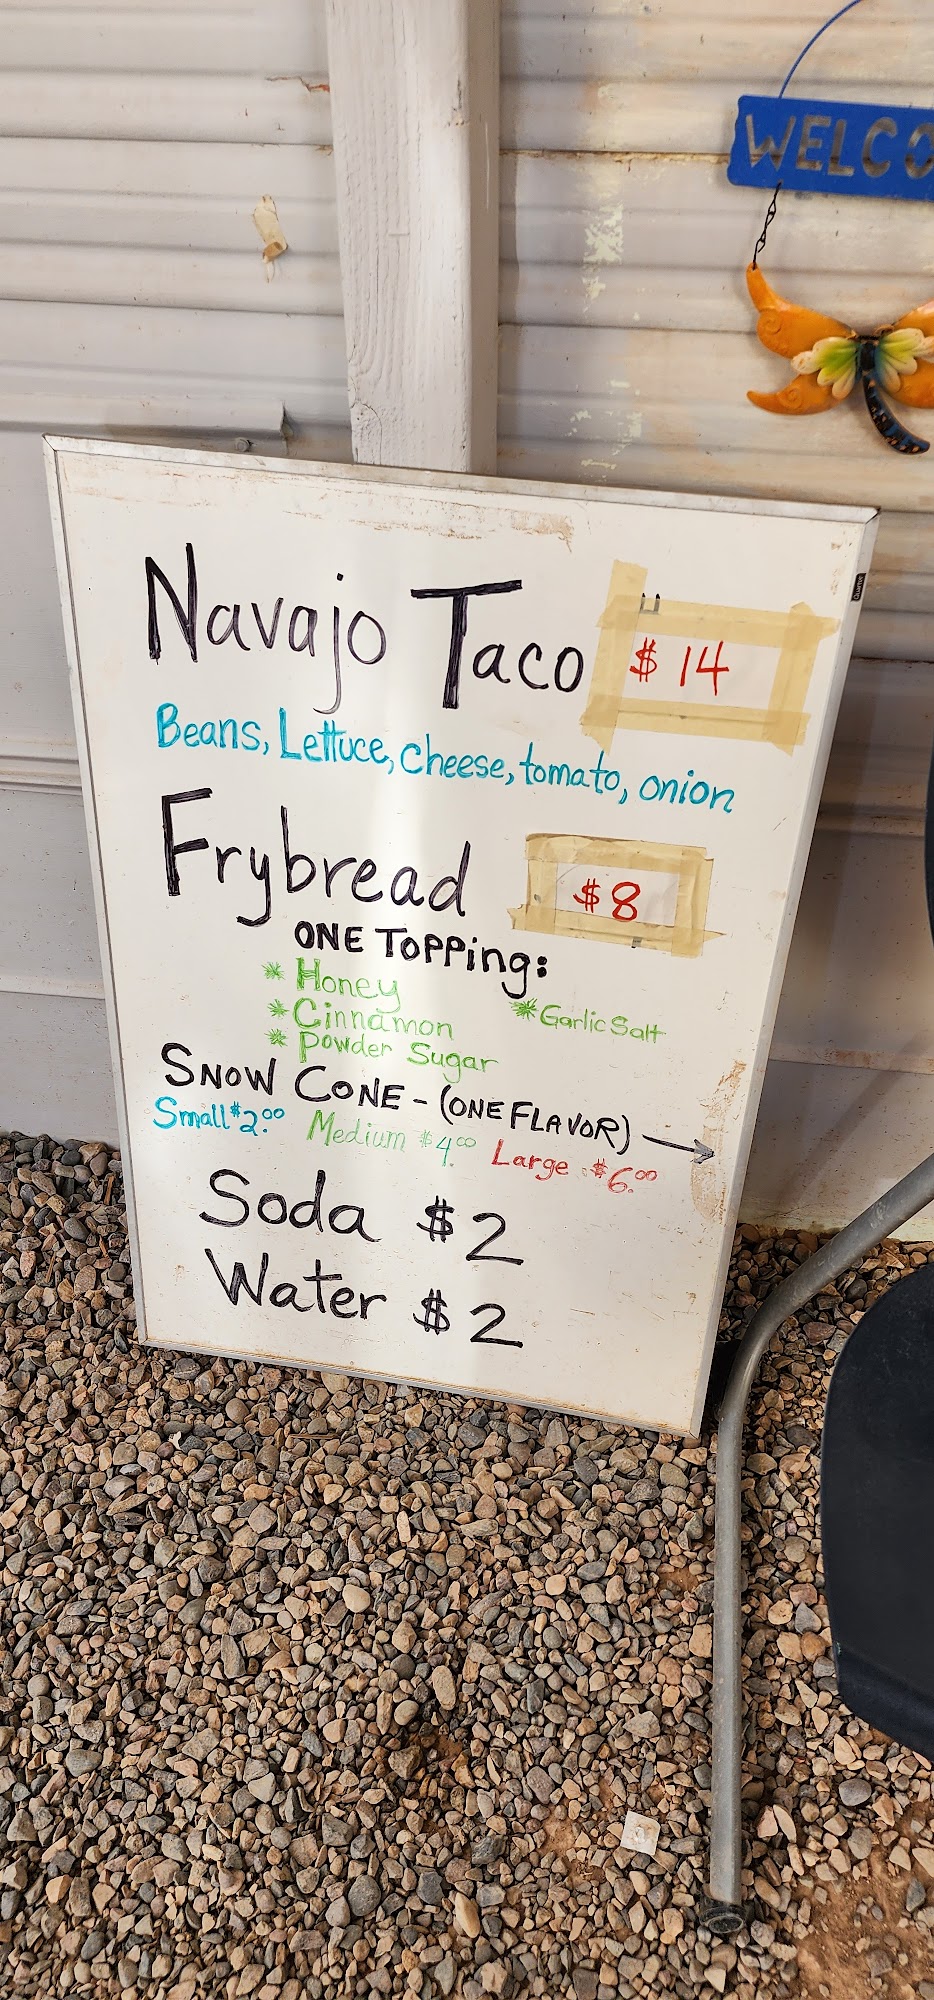 WELCO
Navajo Taco $14
Beans, Lettuce, Cheese, tomato, onion
Frybread $8
ONE TOPPing:
* Honey
* Cinnamon * Garlic Salt
* Powder Sugar
SNOW CONE - (ONE FLAVOR) →
Small $2.00 Medium $4.00 Large $6.00
Soda $2
Water $2
Quartet